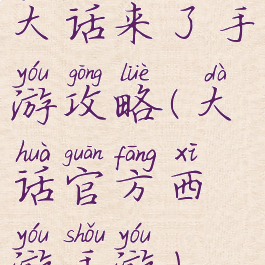 大话来了手
yóu gōng lüè dà
游攻略(大
huà guān fāng xī
话官方西
yóu shǒu yóu
游手游)